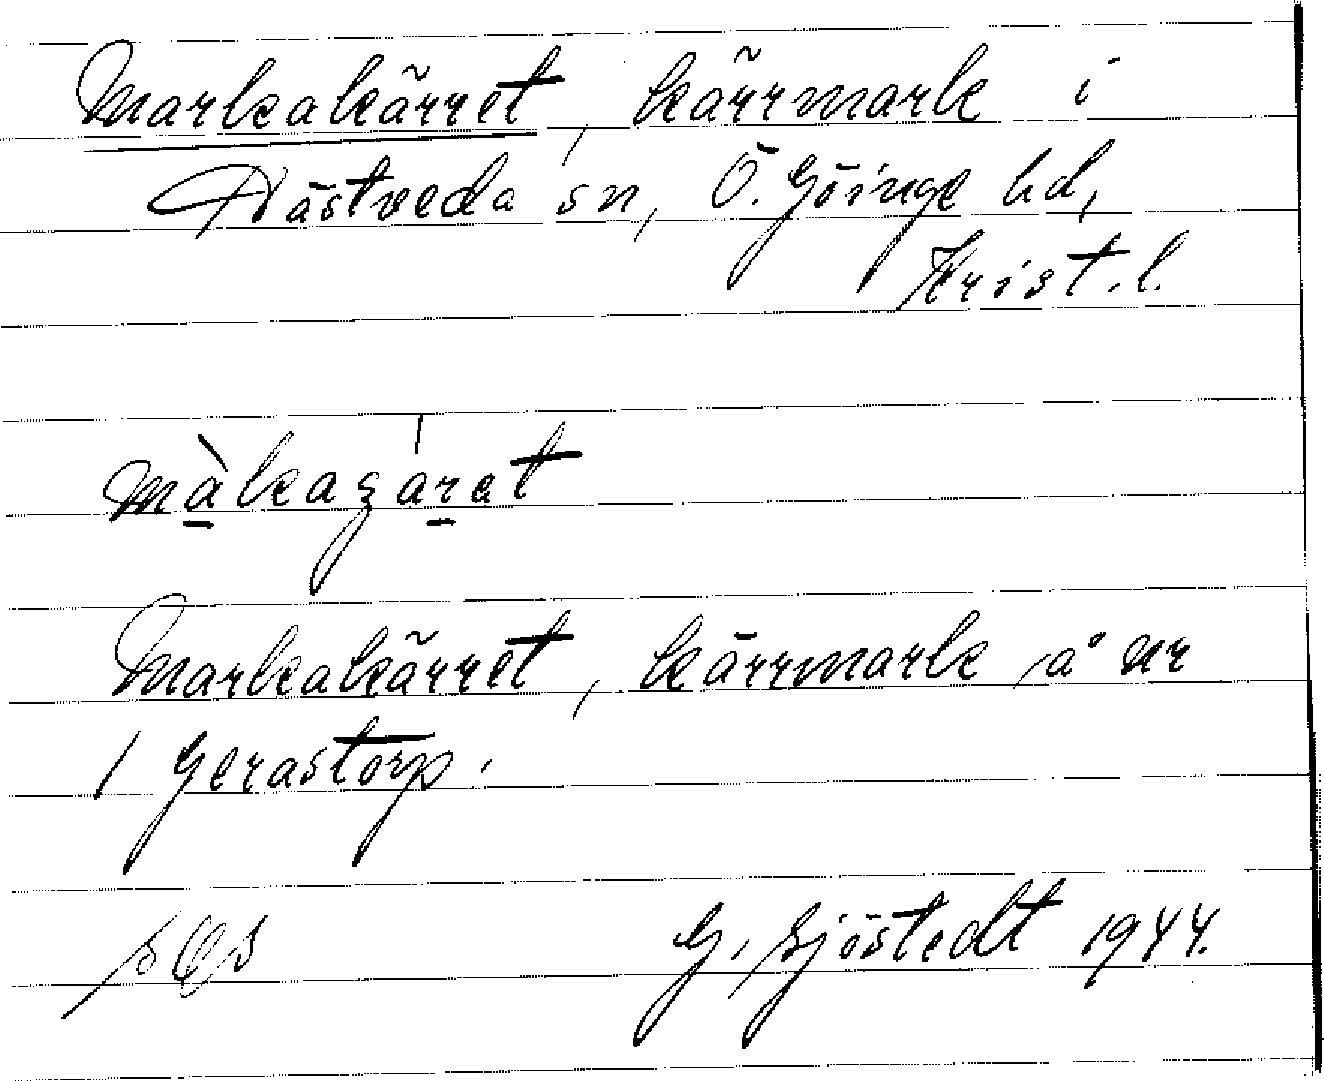 Markakärret, kärrmark i
Hästveda sn, Ö. Göinge hd,
Krist. l.
màkagárat
Markakärret, kärrmark å nr
1 Gerastorp.
G. Sjöstedt 1944.